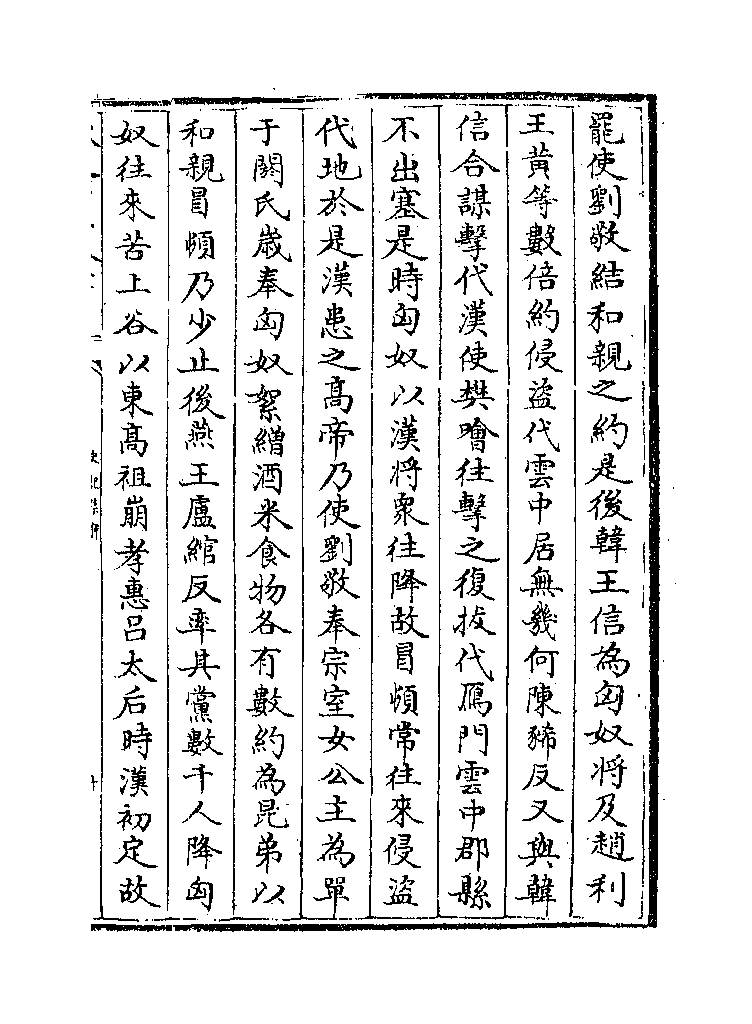 罷使劉敬結和親之約是後韓王信為匈奴將及趙利
王黄等數倍約侵盗代雲中居無幾何陳豨反又與韓
信合謀擊代漢使樊噲往擊之復拔代鴈門雲中郡縣
不出塞是時匈奴以漢將衆往降故冒頓常往來侵盗
代地於是漢患之髙帝乃使劉敬奉宗室女公主為單
于閼氏歳奉匈奴絮繒酒米食物各有數約為昆弟以
和親冒頓乃少止後燕王盧綰反率其黨數千人降匈
奴往來苦上谷以東髙祖崩孝惠吕太后時漢初定故